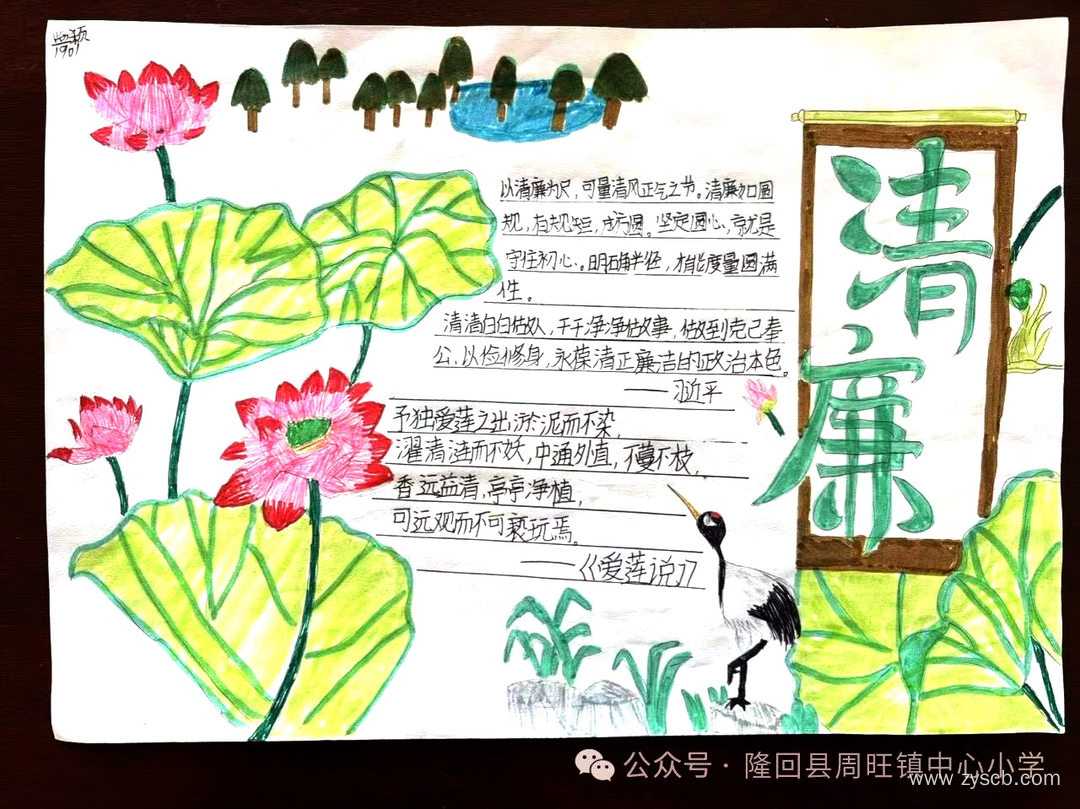 1901
清廉
以清廉为尺，可量清风正气之节。清廉如圆
规，有规矩，成方圆。坚定圆心，就是
守住初心。明确半径，才能度量圆满
人生。
清清白白做人，干干净净做事，做到克己奉
公，以俭修身，永葆清正廉洁的政治本色。
——习近平
予独爱莲之出淤泥而不染，
濯清涟而不妖，中通外直，不蔓不枝，
香远益清，亭亭净植，
可远观而不可亵玩焉。
——《爱莲说》
公众号·隆回县周旺镇中心小学
www.zyscb.com